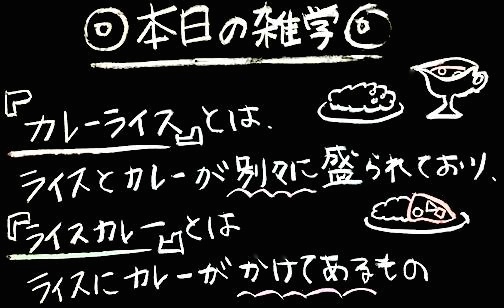 ◎本日の雑学◎
『カレーライス』とは、
ライスとカレーが別々に盛られており、
『ライスカレー』とは
ライスにカレーがかけてあるもの